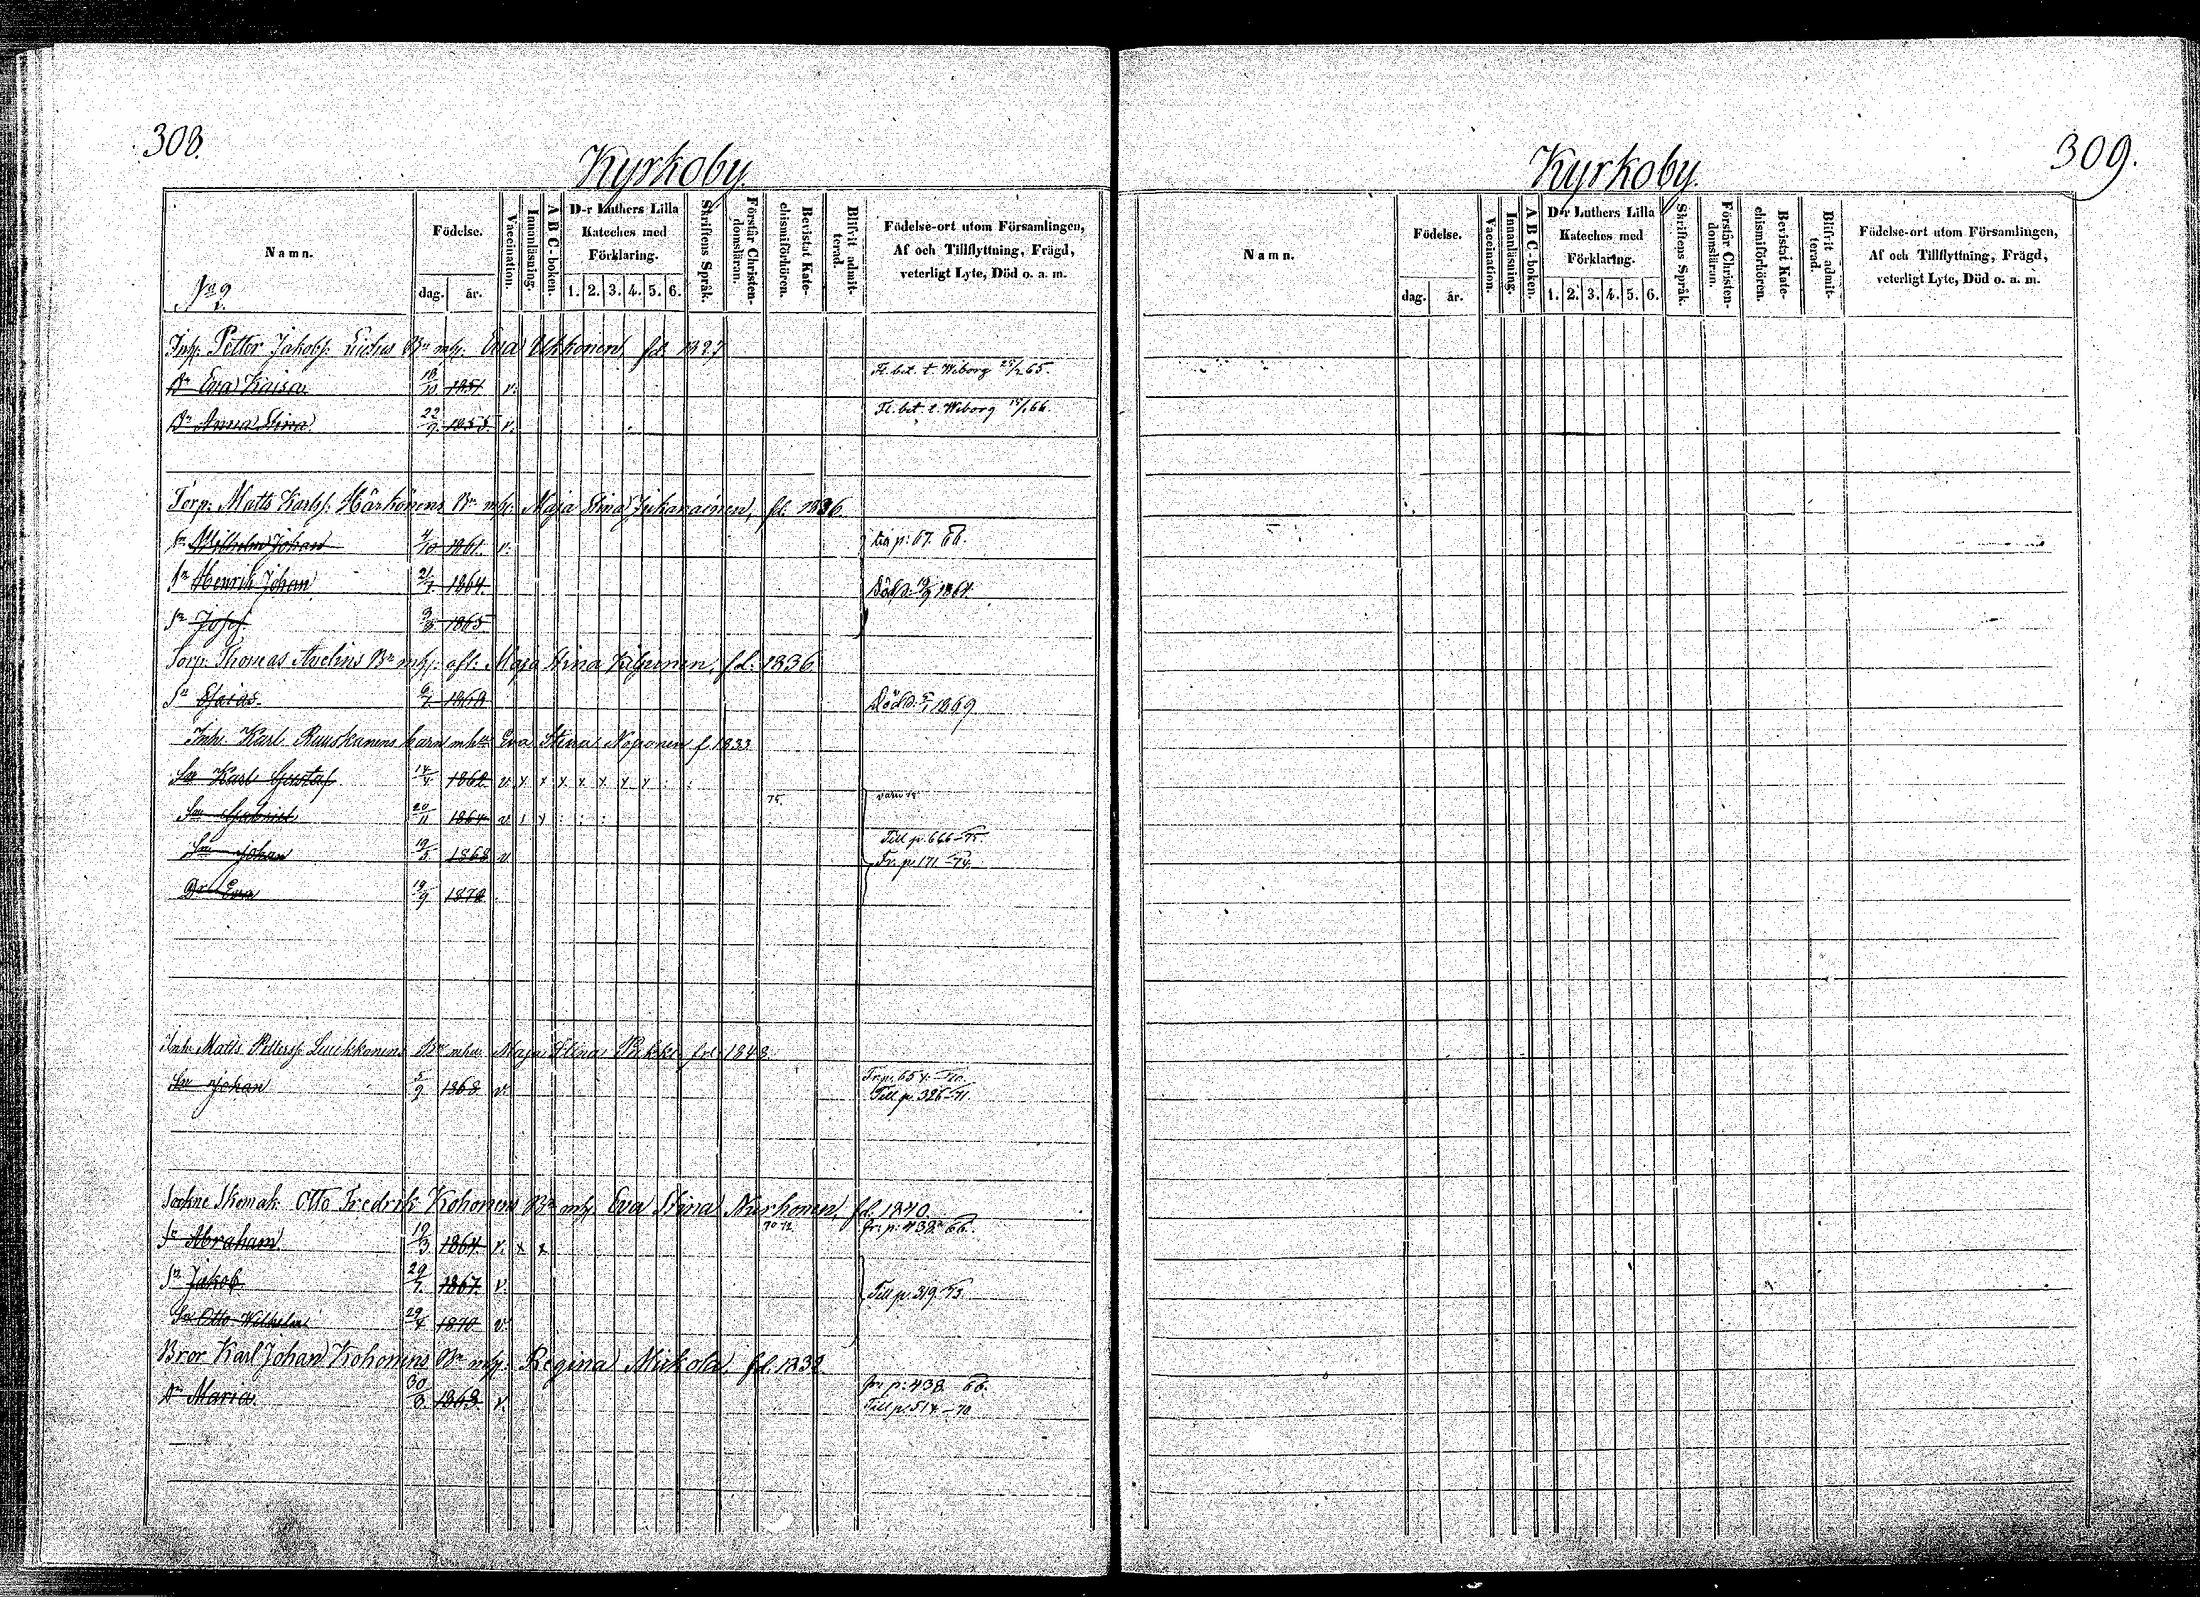 308.
Kyrkoby.
Namn. Födelse. dag. år. Vaccination. Innanläsning. A B C-boken. D-r Luthers Lilla Kateches med Förklaring. 1. 2. 3. 4. 5. 6. Skriftens Språk. Förstår Christendomsläran. Bevistat Katechismiförhören. Blifvit admitterad. Födelse-ort utom Församlingen, Af och Tillflyttning, Frägd, veterligt Lyte, Död o. a. m.
No 9
Inh: Petter Jakobs: Bn mh: Eva Ukkonen, fd. 1827
Dr Eva Kaisa 18/10 1851 v. Fl. bet. t. Wiborg 65
Dr Anna Stina 22/9. 1855. v. Fl. bet. t. Wiborg 66.
Torp: Matts Karls: Härkönens Bn mh: Maja Stina Jukarainen, fd. 1836.
Sn Wilhelm Johan 4/10 1861. v. p: 67. 66.
Sn Henrik Johan 21/7. 1864. Död d. 1864.
Sn Josef 1865
Torp: Thomas Avelins Bn mh: afl: Maja Stina Kilponen, fd. 1836
Sn Esaias 6/7. 1868 Död d. 1869
Inh. Karl Ruuskanens barn mh Eva Stina Noponen f. 1833
Sn Karl Gustaf 14/4 1862 v. x x x x x x x : :
75.
Sn Gabriel 20/11 1864 v. : x : : :
Till p. 666 -75.
Sn Johan 19/5 1868 v. Fr. p. 171 -74.
Dr Eva 19/9 1872
Inh: Matts Petterss: Luukkanens Bn mhu Maja Stina Pukki fd. 1848.
Sn Johan 5/9 1868 v. Fr. p. 654 -70.
Till p. 326 -71
Otto Fredrik Kohonens Bn mh: Eva Stina Nurhonen, fd. 1840.
70 72 fr: p: 438. 66.
Sn Abraham 19/3 1864 v. x x
Sn Jakob 29/7. 1867. v. Till p. 319 -73.
Sn Otto Wilhelm 29/4 1870 v.
Bror Karl Johan Kohonens Bn mh: Regina Mukola, fd. 1832.
fr: p: 438. 66.
Dr Maria 30/8. 1863. v. Till p. 514 -70
309.
Kyrkoby.
Namn. Födelse. dag. år. Vaccination. Innanläsning. A B C-boken. D-r Luthers Lilla Kateches med Förklaring. 1. 2. 3. 4. 5. 6. Skriftens Språk. Förstår Christendomsläran. Bevistat Katechismiförhören. Blifvit admitterad. Födelse-ort utom Församlingen, Af och Tillflyttning, Frägd, veterligt Lyte, Död o. a. m.